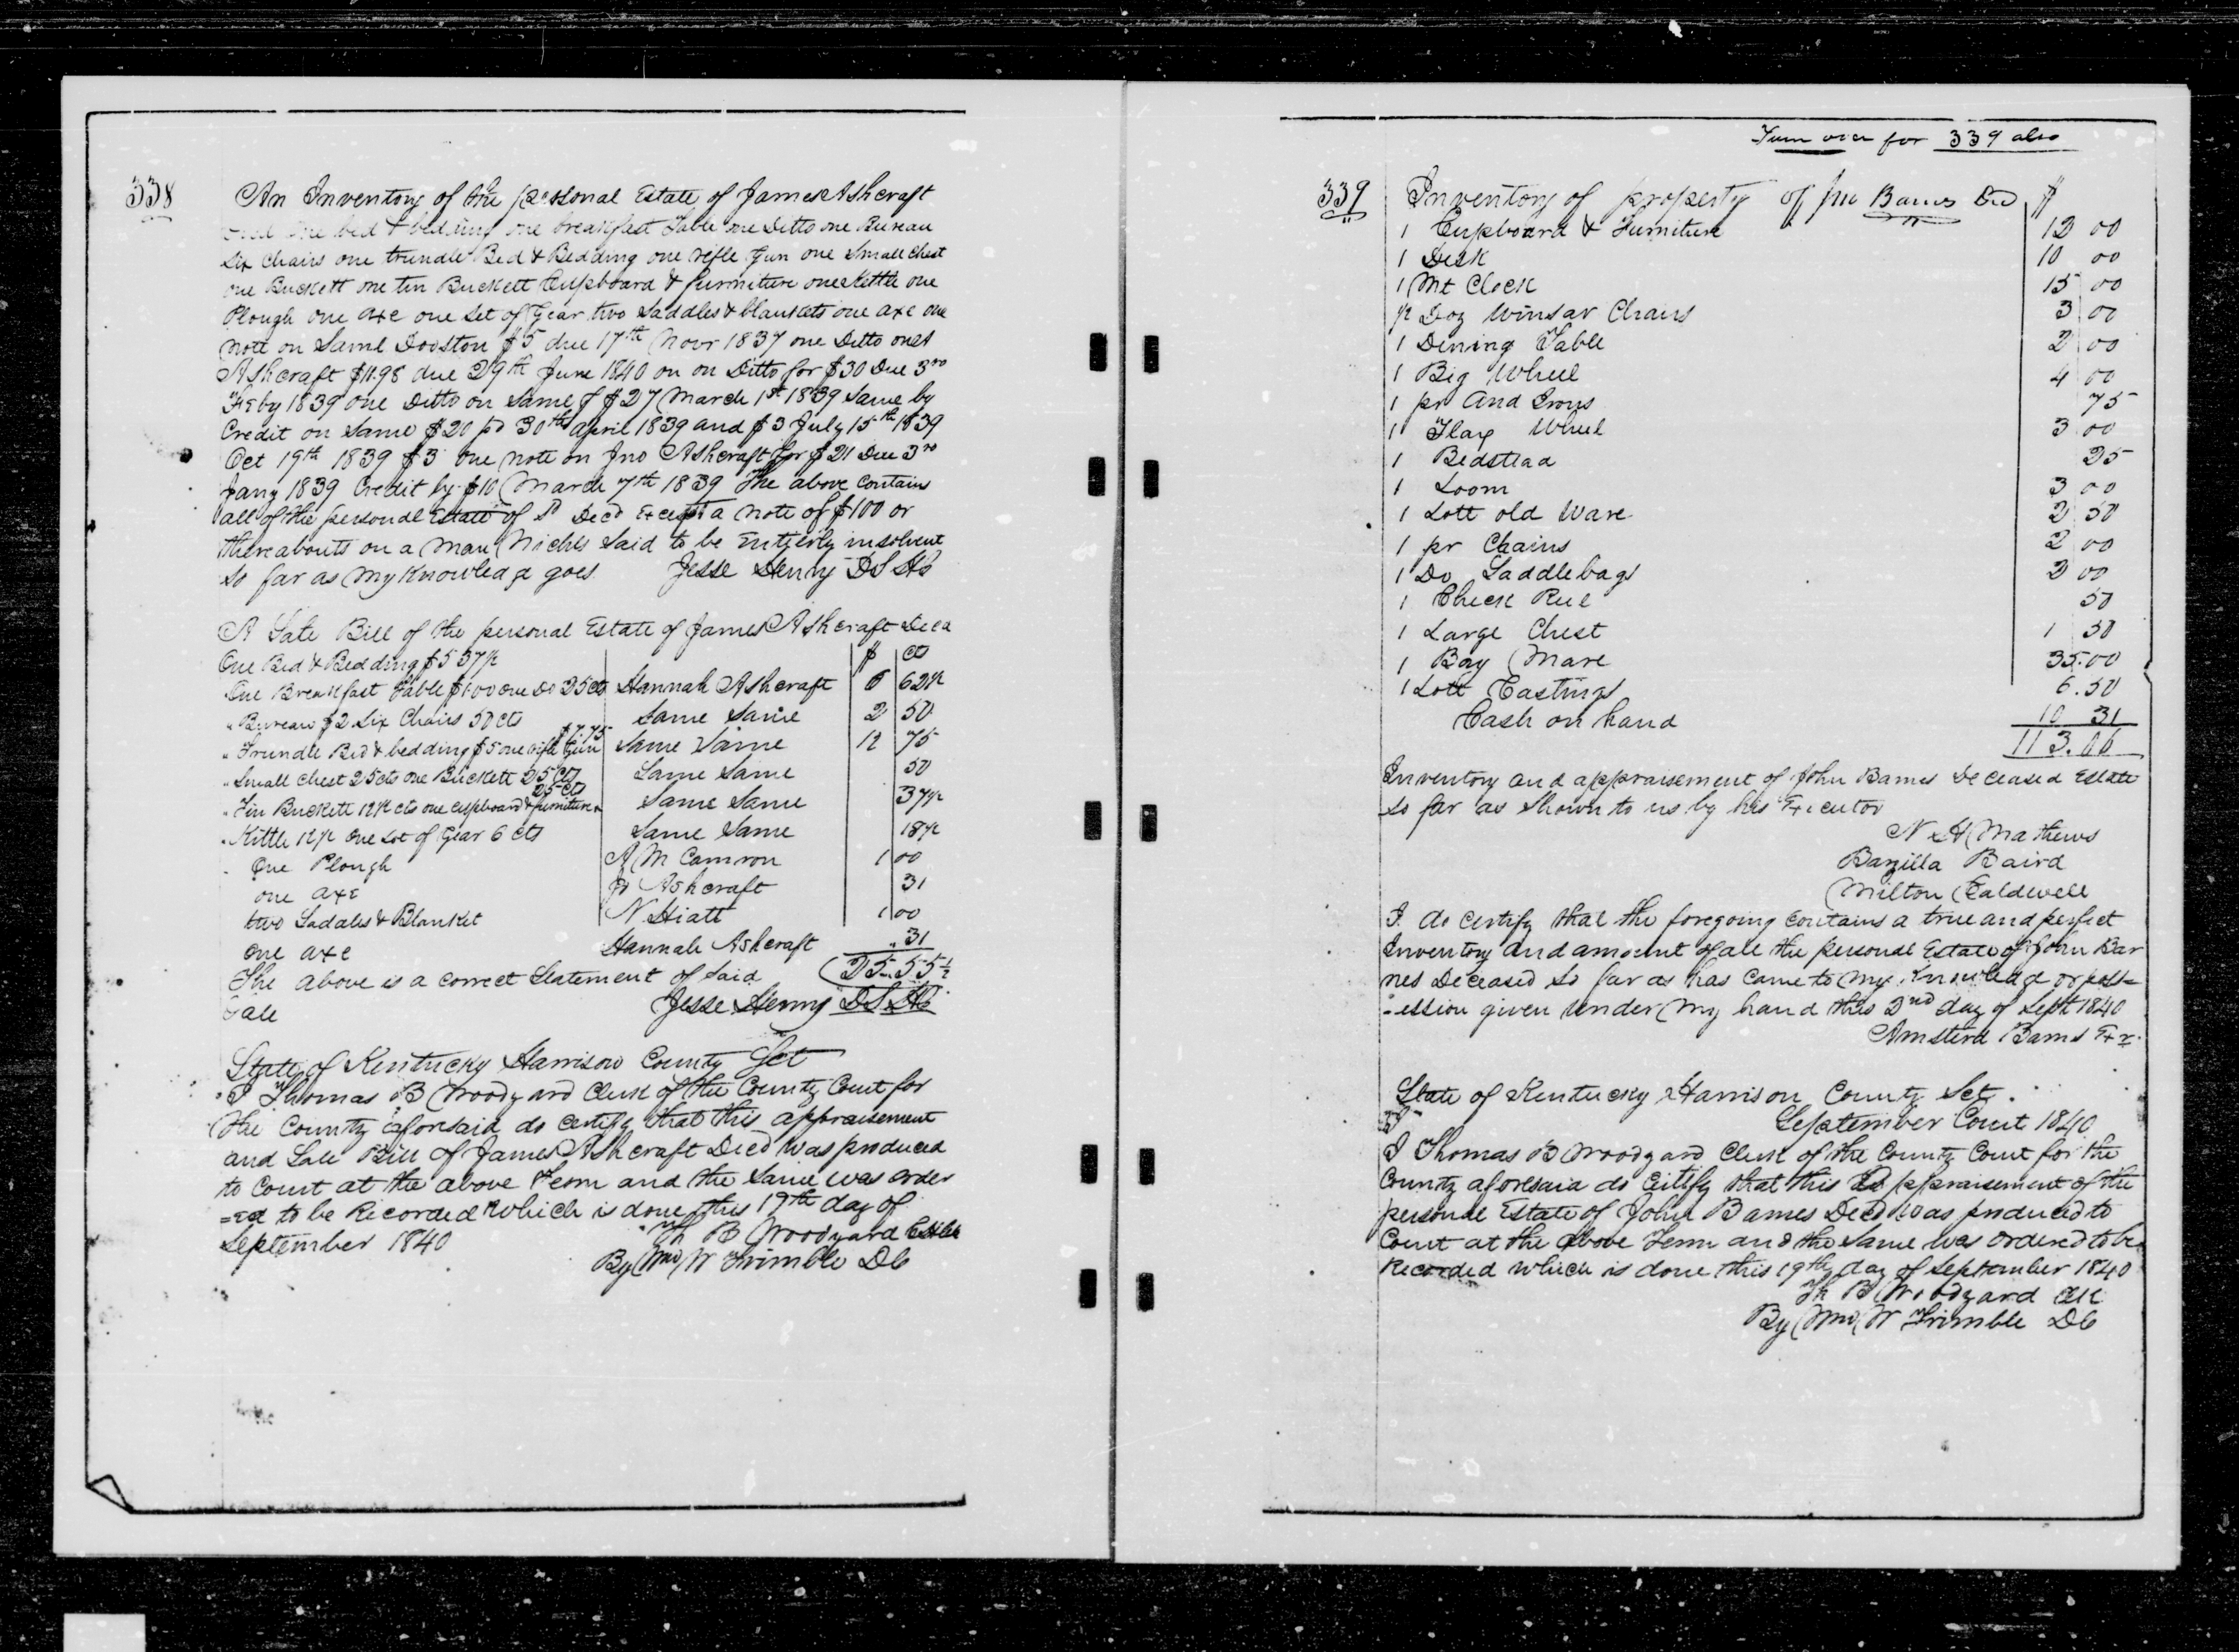 338
An Inventory of the personal Estate of James Ashcraft
one bed & bedding one breakfast Table one Ditto one Bureau
Six Chairs one trundle Bed & Bedding one rifle Gun one Small Chest
one Buckett one tin Buckett Cupboard & furniture one Kettle one
Plough one axe one Set of Gear two Saddles & blankets one axe one
note on Saml Dooston $5 due 17th Novr 1837 one Ditto on
Ashcraft $11.98 due 29th June 1840 on on Ditto for $30 Due 3rd
Feby 1839 one Ditto on Same of $27 March 1st 1839 Same by
Credit on Same $20 pd 30th April 1839 and $3 July 15th 1839
Oct 19th 1839 $3 one note on Jno Ashcraft for $21 Due 3rd
Jany 1839 Credit by $10 March 7th 1839 The above contains
all of the personal Estate of Sd Decd Except a note of $100 or
thereabouts on a man Nichls Said to be Entierly insolvent
So far as my Knowledge goes Jesse Henry DS HC
A Sale Bill of the personal Estate of James Ashcraft Decd
One Bed & Bedding $5 37½ $ cts
One Breakfast Table $1.00 one Do 25 cts Hannah Ashcraft 6 62½
" Bureau $2 Six Chairs 50 cts Same Same 2 50
" Trundle Bed & bedding $5 one rifle Gun $7.75 Same Same 12 75
" Small Chest 25 cts one Buckett 25 cts Same Same 50
" Tin Buckett 12½ cts one cupboard & furniture 25 cts Same Same 37½
" Kittle 12½ one Set of Gear 6 cts Same Same 18½
One Plough A M Camron 1 00
one axe Jo Ashcraft 31
two Sadales & Blanket N Hiatt 1 00
One axe Hannah Ashcraft " 31
The above is a correct Statement of Said 25.55½
Sale Jesse Henry DS HC
State of Kentucky Harrison County Sct
I Thomas B Woodyard Clerk of the County Court for
the County aforesaid do certify that this appraisement
and Sale Bill of James Ashcraft Decd was produced
to Court at the above Term and the Same was order
=ed to be Recorded Which is done this 19th day of
September 1840 Th B Woodyard
By Wm W Trimble DC
Turn over for 339 also
339 Inventory of property of Jno Barnes Decd $
1 Cupboard & Furniture 12 00
1 Desk 10 00
1 Mt Clock 15 00
½ Doz Winsar Chairs 3 00
1 Dining Table 2 00
1 Big Wheel 4 00
1 pr And Irons 75
1 Flax Wheel 3 00
1 Bedstead 25
1 Loom 3 00
1 Lott old Ware 2 50
1 pr Chains 2 00
1 Do Saddlebags 2 00
1 Check Reel 50
1 Large Chest 1 50
1 Bay Mare 35.00
1 Lott Castings 6.50
Cash on hand 10 31
113.06
Inventory and appraisement of John Barnes Deceased Estate
So far as Shown to us by his Executor
N H Mathews
Bazilla Baird
Milton Caldwell
I do certify that the foregoing contains a true and perfect
Inventory and amount of all the personal Estate of John Bar
nes Deceased So far as has came to my Knowledge or poss=
=ession given under my hand this 2nd day of Sept 1840
Amsterd Barnes Exr
State of Kentucky Harrison County Sct.
September Court 1840
I Thomas B Woodyard Clerk of the County Court for the
County aforesaid do Certify that this appraisement of the
personal Estate of John Barnes Decd was produced to
Court at the above Term and the Same was ordered to be
Recorded which is done this 19th day of September 1840
Th B Woodyard Clk
By Wm W Trimble DC